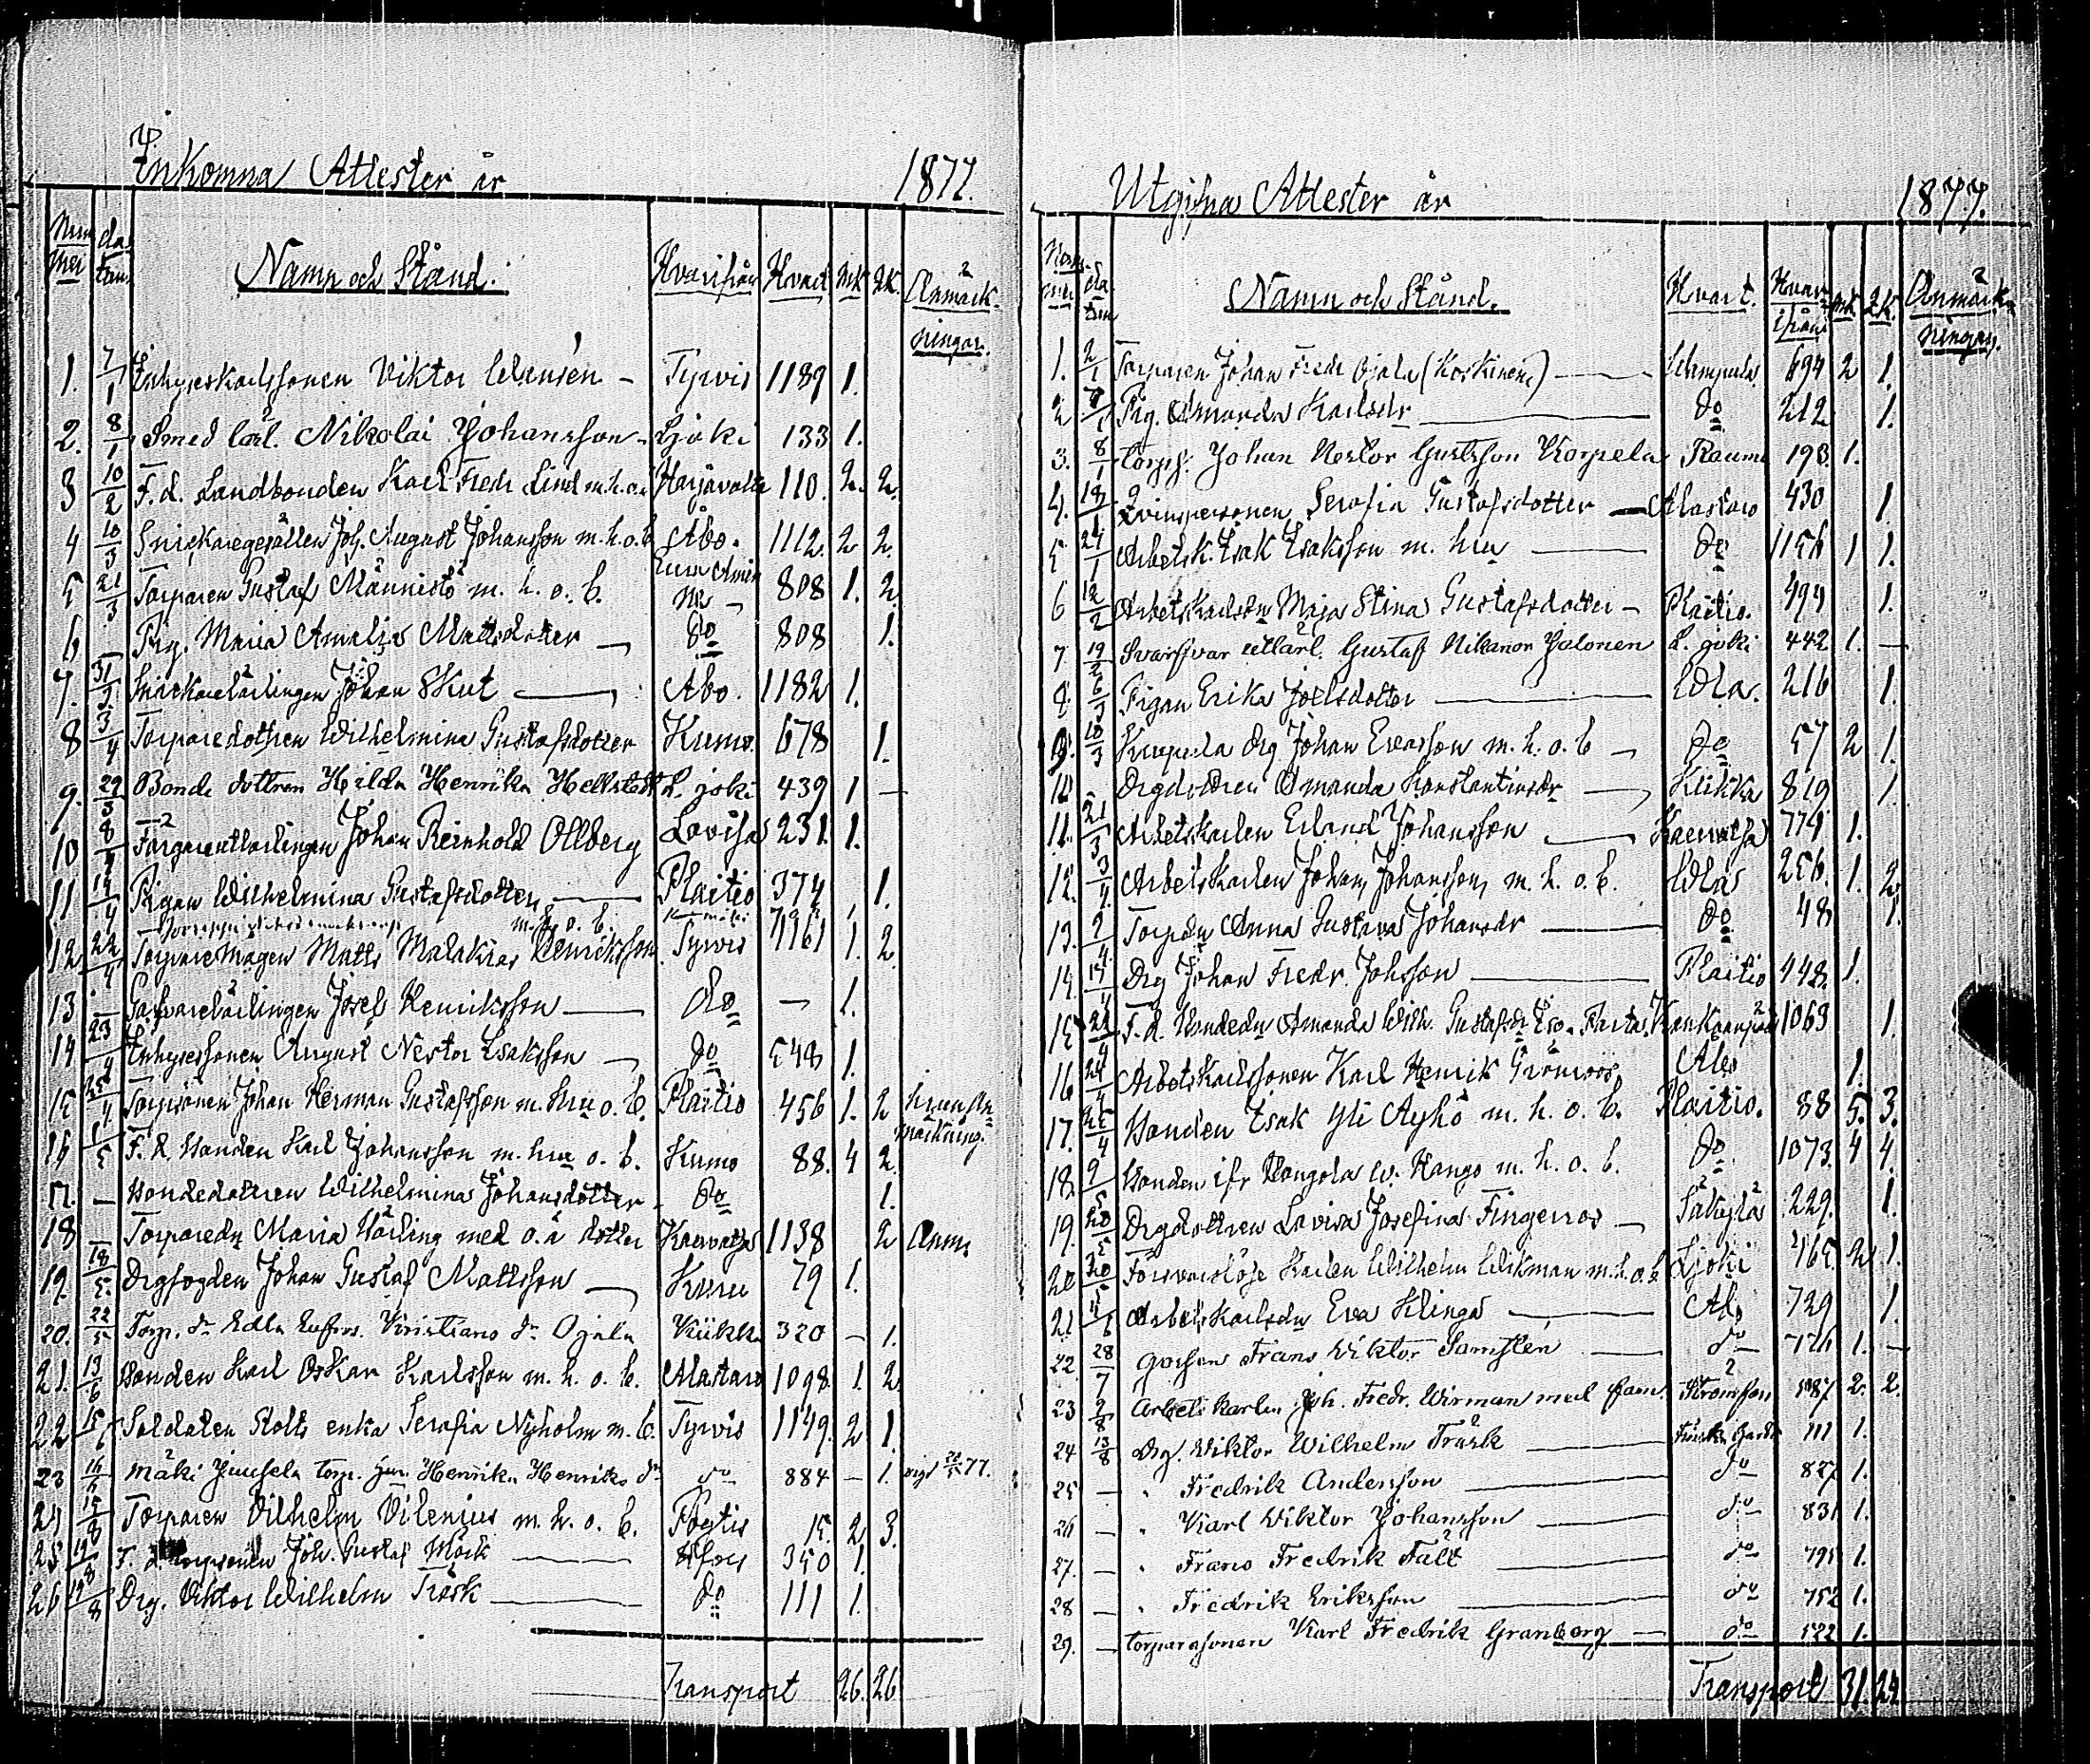 Inkomna Attester år 1877.
Nummer datum Namn och Stånd. Hvarifrån Hvart mk qk. Anmärkningar.
1. 7/1 Inhyseskarlssonen Viktor - Tyrvis 1189 1.
2. 8/1 Smed lärl. Nikolai Johansson - Ljoki 133 1.
3 10/2 F. d. Landbonden Karl Fredr Lind m. h. o. Harjavalta 110. 2. 2.
4 10/3 Snickaregesällen Joh. August Johansson m. h. o. b. Åbo. 1112. 2 2.
5 21/3 Torparen Gustaf Männistö m. h. o. b. 808 1. 2.
6 — Pig. Maria Amalia Mattsdotter — do 808 1.
7. 31/3 Snickarelärlingen Johan Skut — Åbo. 1182 1.
8 3/4 Torparedottren Wilhelmina Gustafsdotter Kumo. 678 1.
9. 29/3 Bonde dottren Hilda Henrika Hellstedt L. joki 439 1 —
10 8/4 Färgarelärlingen Johan Reinhold Ollberg Lovisa 231. 1.
11 14/4 Pigan Wilhelmina Gustafsdotter — Plaitio 374 1.
m. h. o. b.
12 22/4 Torparemågen Matts Malakias Henriksson Tyrvis 1161 1. 2.
13 — Garfvarelärlingen Josef Henriksson — do — 1.
14 23/4 Inhysessonen August Nestor Isaksson — do 548 1.
15 25/4 Torpsonen Johan Herman Gustafsson m. hru o. b. Plaitio 456 1. 2
16 1/5 F. d. Bonden Karl Johansson m. hru o. b. Kumo 88. 4 2.
17. — Bondedottren Wilhelmina Johansdotter do 1.
18 — Torparedn Maria Härling med o. ä dotter 1138 2 Anm.
19. 18/5. Drgfogden Johan Gustaf Mattsson — 79 1.
20. 22/5 Torp. dr Edla Kristians dr Ojala Kiikka 320 — 1.
21. 13/6 Bonden Karl Oskar Karlsson m. h. o. b. Alastaro 1098. 1. 2.
22 15/6 Soldaten Stolts enka Serafia Nyholm m. b. Tyrvis 1149. 2 1.
23 16/6 Mäki Juusela torp. Henrika Henriks dr do 884 — 1. 77.
24 15/8 Torparen Vilhelm Vilenius m. h. o. b. 15. 2 3.
25 19/8 F. d. torpsonen Joh. Gustaf Mörk — 350 1.
26 19/8 Drg. Viktor Wilhelm Träsk — do 111 1.
Transport 26. 26
Utgifna Attester år 1877.
Nummer datum Namn och Stånd. Hvart. Hvarifrån mk qk. Anmärkningar.
1. 2/1 Torparen Johan Fredr Ojala (Koskinen) — 694 2 1.
2 Pig. Amanda Karlsdr — do 212 1.
3. 8/1 Torps. Johan Nestor Gustsson Korpela Raumo 193. 1.
4. 18/1 Qvinspersonen Serafia Gustafsdotter — Alastaro 430 1.
5 24/1 Arbetsk. Isak Isaksson m. hru — do 1156 1 1.
6 12/2 Arbetskarlsdn Maja Stina Gustafsdotter — Plaitio. 494 1.
7 19/2 Svarfvar utlärl. Gustaf Nikanor Jalonen L. joki 442 1. —
8. 6/3 Pigan Erika Joelsdotter — Wla. 216 1.
9. 10/3 Drg Johan Evasson m. h. o. b — do 57 2 1.
10. - Drgdottren Amanda Konstantinsdr — Kiikka 819 1.
11. 21/3 Arbetskarlen Erland Johansson — 774 1.
12. 3/4. Arbetskarlen Johan Johansson m. h. o. b. Wla 256. 1. 2
13. 9/4 Torpdn Anna Gustava Johansdr — do 48 1.
14. 14/4 Drg Johan Fredr. Johsson — Plaitio 448. 1.
15 21/4 F. d. Bondedn Amanda Wilh. Gustafsdr Kankaanpää 1063 1.
16 24/4 Arbetskarlssonen Karl Henrik Grönroos Åbo 1.
17. 25/4 Bonden Isak Yli Äyhö m. h. o. b. Plaitio. 88 5. 3.
18. 9/5 Bonden ifr Hangola W. Hango m. h. o. b. do 1073. 4 4.
19. 20/5 Drgdottren Lovisa Josefina Fingerroos — Säkylä 229. 1.
20 20/5 Försvarslöse Karlen Wilhelm Wikman m. h. o. b Ljoki 465. 2 1.
21 Arbetskarlsdn Eva Klinga — Åbo 729 1.
22. 28/7 gossen Frans Viktor Samstén — do 776 1. —
23 2/8 Arbetskarlen Joh. Fredr. Wirman med fam. 587 2. 2.
24 13/8 Drg. Viktor Wilhelm Träsk — 111 1.
25 — " Fredrik Andersson — do 827 1.
26 — " Karl Viktor Johansson — do 831 1.
27. — " Frans Fredrik Fält — do 795 1.
28 — " Fredrik Eriksson — do 752 1.
29. — torparesonen Karl Fredrik Granberg — do 522 1.
Transport 31. 24.